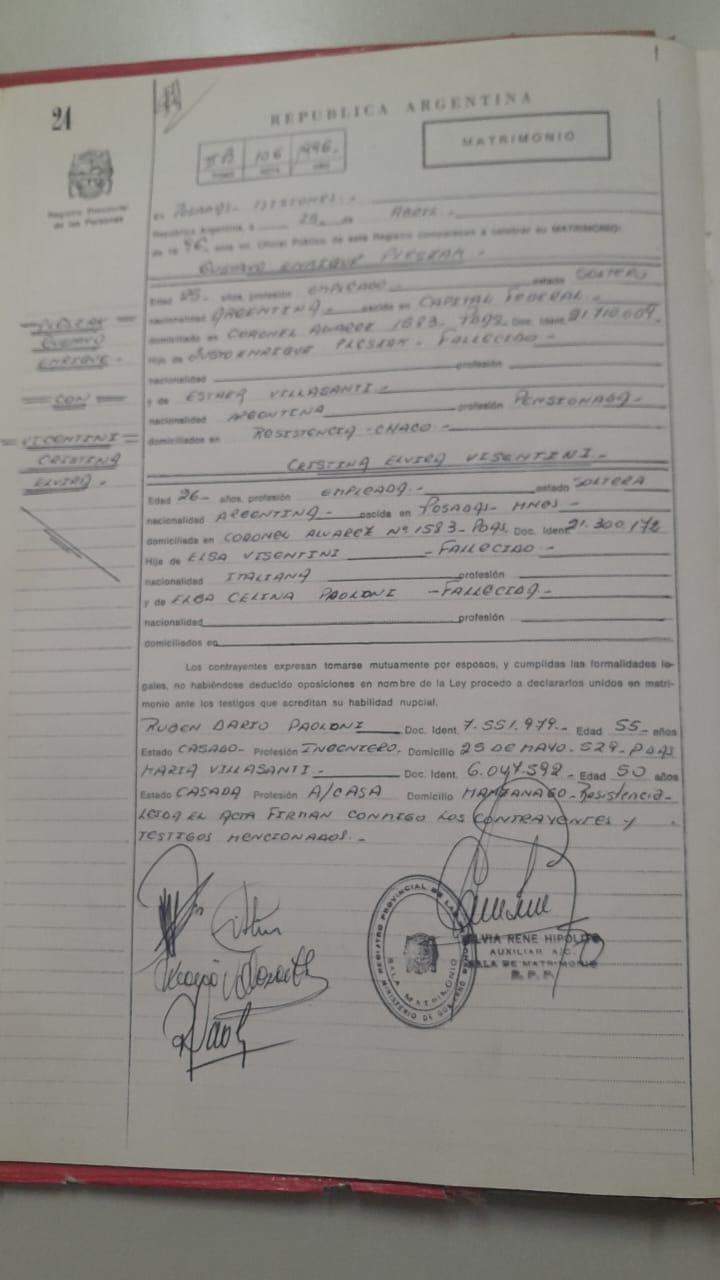 21
REPUBLICA ARGENTINA
MATRIMONIO
106 1996.
Registro Provincial
de las Personas
En POSADAS - MISIONES. -
República Argentina, a 25 de ABRIL -
de 19 96, ante mí, Oficial Público de este Registro comparecen a celebrar su MATRIMONIO:
GUSTAVO ENRIQUE
Edad años, profesión EMPLEADO estado SOLTERO
nacionalidad ARGENTINA - nacido en CAPITAL FEDERAL -
domiciliado en CORONEL ALVAREZ 1583 - PDAS. Doc. Ident.
Hijo de JUSTO ENRIQUE - FALLECIDO -
nacionalidad profesión
y de ESTHER VILLASANTI -
nacionalidad ARGENTINA profesión PENSIONADA -
domiciliados en RESISTENCIA - CHACO -
GUSTAVO
ENRIQUE -
= CON =
= VICENTINI =
CRISTINA
ELVIRA -
CRISTINA ELVIRA VISENTINI. -
Edad 26 - años, profesión EMPLEADA. - estado SOLTERA
nacionalidad ARGENTINA. - nacida en POSADAS - MNES -
domiciliada en CORONEL ALVAREZ Nº 1583 - PDAS, Doc. Ident. 21.300.172
Hija de ELSA VISENTINI - FALLECIDO -
nacionalidad ITALIANA profesión
y de ELBA CELINA PAOLONI - FALLECIDA. -
nacionalidad profesión
domiciliados en
Los contrayentes expresan tomarse mutuamente por esposos, y cumplidas las formalidades le-
gales, no habiéndose deducido oposiciones en nombre de la Ley procedo a declararlos unidos en matri-
monio ante los testigos que acreditan su habilidad nupcial.
RUBEN DARIO PAOLONI Doc. Ident. 7.551.979. - Edad 55 - años
Estado CASADO - Profesión INGENIERO. Domicilio 25 DE MAYO - 529 - PDAS
MARIA VILLASANTI. - Doc. Ident. 6.047.592 - Edad 50 años
Estado CASADA Profesión A/CASA Domicilio - Resistencia -
LEIDA EL ACTA FIRMAN CONMIGO LOS CONTRAYENTES Y
TESTIGOS MENCIONADOS. -
REGISTRO PROVINCIAL DE LAS
SALA MATRIMONIO
MINISTERIO DE GOBIERNO
SILVIA RENE HIPOLITO
AUXILIAR A/C.
SALA DE MATRIMONIO
R. P. P.